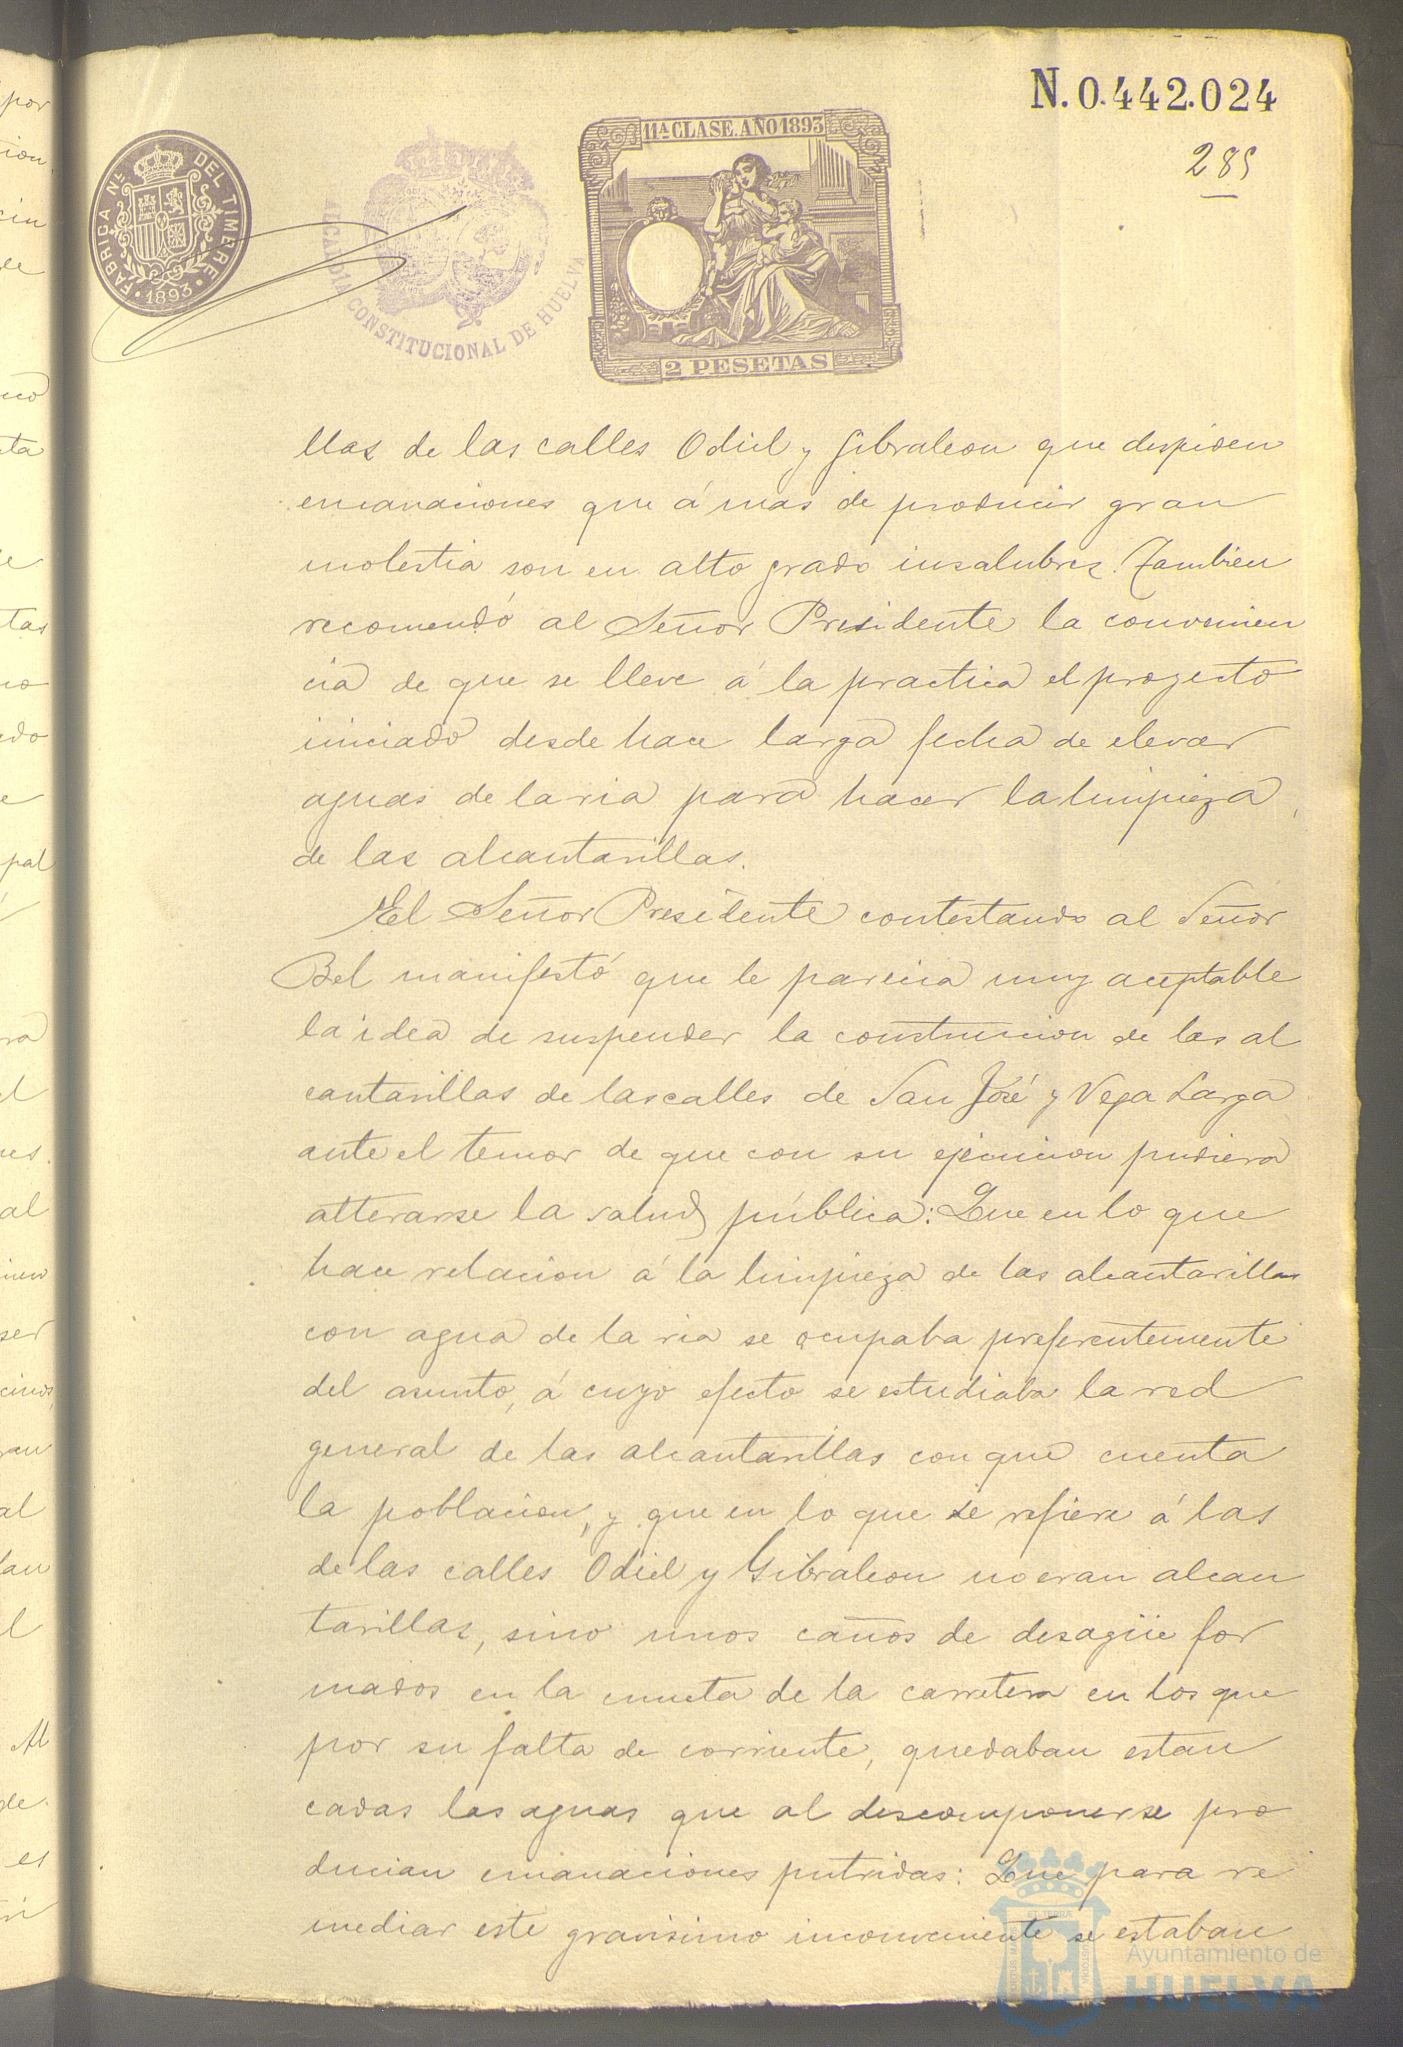 N. 0.442.024
285
FABRICA Nal. DEL TIMBRE
1893
ALCALDIA CONSTITUCIONAL DE HUELVA
11ª CLASE. AÑO 1893
2 PESETAS
llas de las calles Odiel y Gibraleon que despiden
emanaciones que á mas de producir gran
molestia son en alto grado insalubres. Tambien
recomendó al Señor Presidente la convenien
cia de que se lleve á la practica el proyecto
iniciado desde hace larga fecha de elevar
aguas de la ria para hacer la limpieza
de las alcantarillas.
El Señor Presidente contestando al Señor
Bel manifestó que le parecia muy aceptable
la idea de suspender la construccion de las al
cantarillas de las calles de San José y Vega Larga
ante el temor de que con su ejecucion pudiera
alterarse la salud pública: Que en lo que
hace relacion á la limpieza de las alcantarillas
con agua de la ria se ocupaba preferentemente
del asunto, á cuyo efecto se estudiaba la red
general de las alcantarillas con que cuenta
la poblacion, y que en lo que se refiere á las
de las calles Odiel y Gibraleon no eran alcan
tarillas, sino unos caños de desagüe for
mados en la cuneta de la carretera en los que
por su falta de corriente, quedaban estan
cadas las aguas que al descomponerse pro
ducian emanaciones putridas: Que para re
mediar este gravisimo inconveniente se estaban
Ayuntamiento de
HUELVA